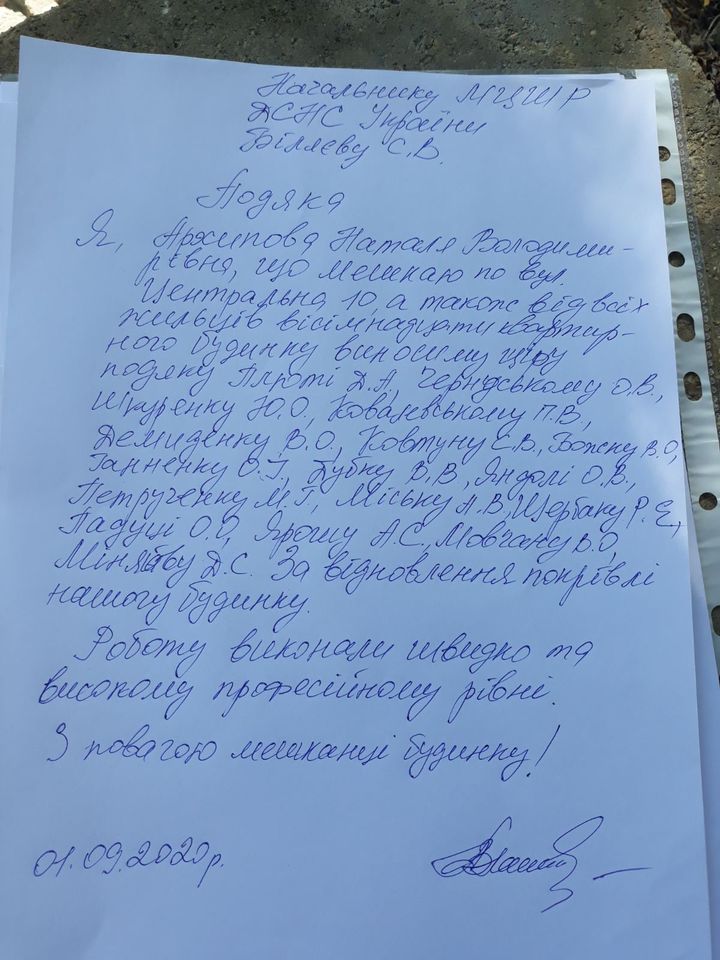 Начальнику МЦШР
ДСНС України
Біляєву С.В.
Подяка
Я, Архипова Наталя Володими-
рівна, що мешкаю по вул.
Центральна 10, а також від всіх
жильців вісімнадцати квартир-
ного будинку виносимо щиру
подяку Д.А, О.В.,
Шкуренку Ю.О, Ковалевському П.В.,
Демиденку В.О., Ковтуну Є.В., В.О,
Ганненку О.Г, Дубку В.В, Яндолі О.В.,
Петрученку М.Г, Міську А.В, Щербаку Р.Є,
Падуці О.О, Ярошу А.С, Мовчану В.О,
Д.С. За відновлення покрівлі
нашого будинку.
Роботу виконали швидко та
високому професійному рівні.
З повагою мешканці будинку!
01.09.2020р.